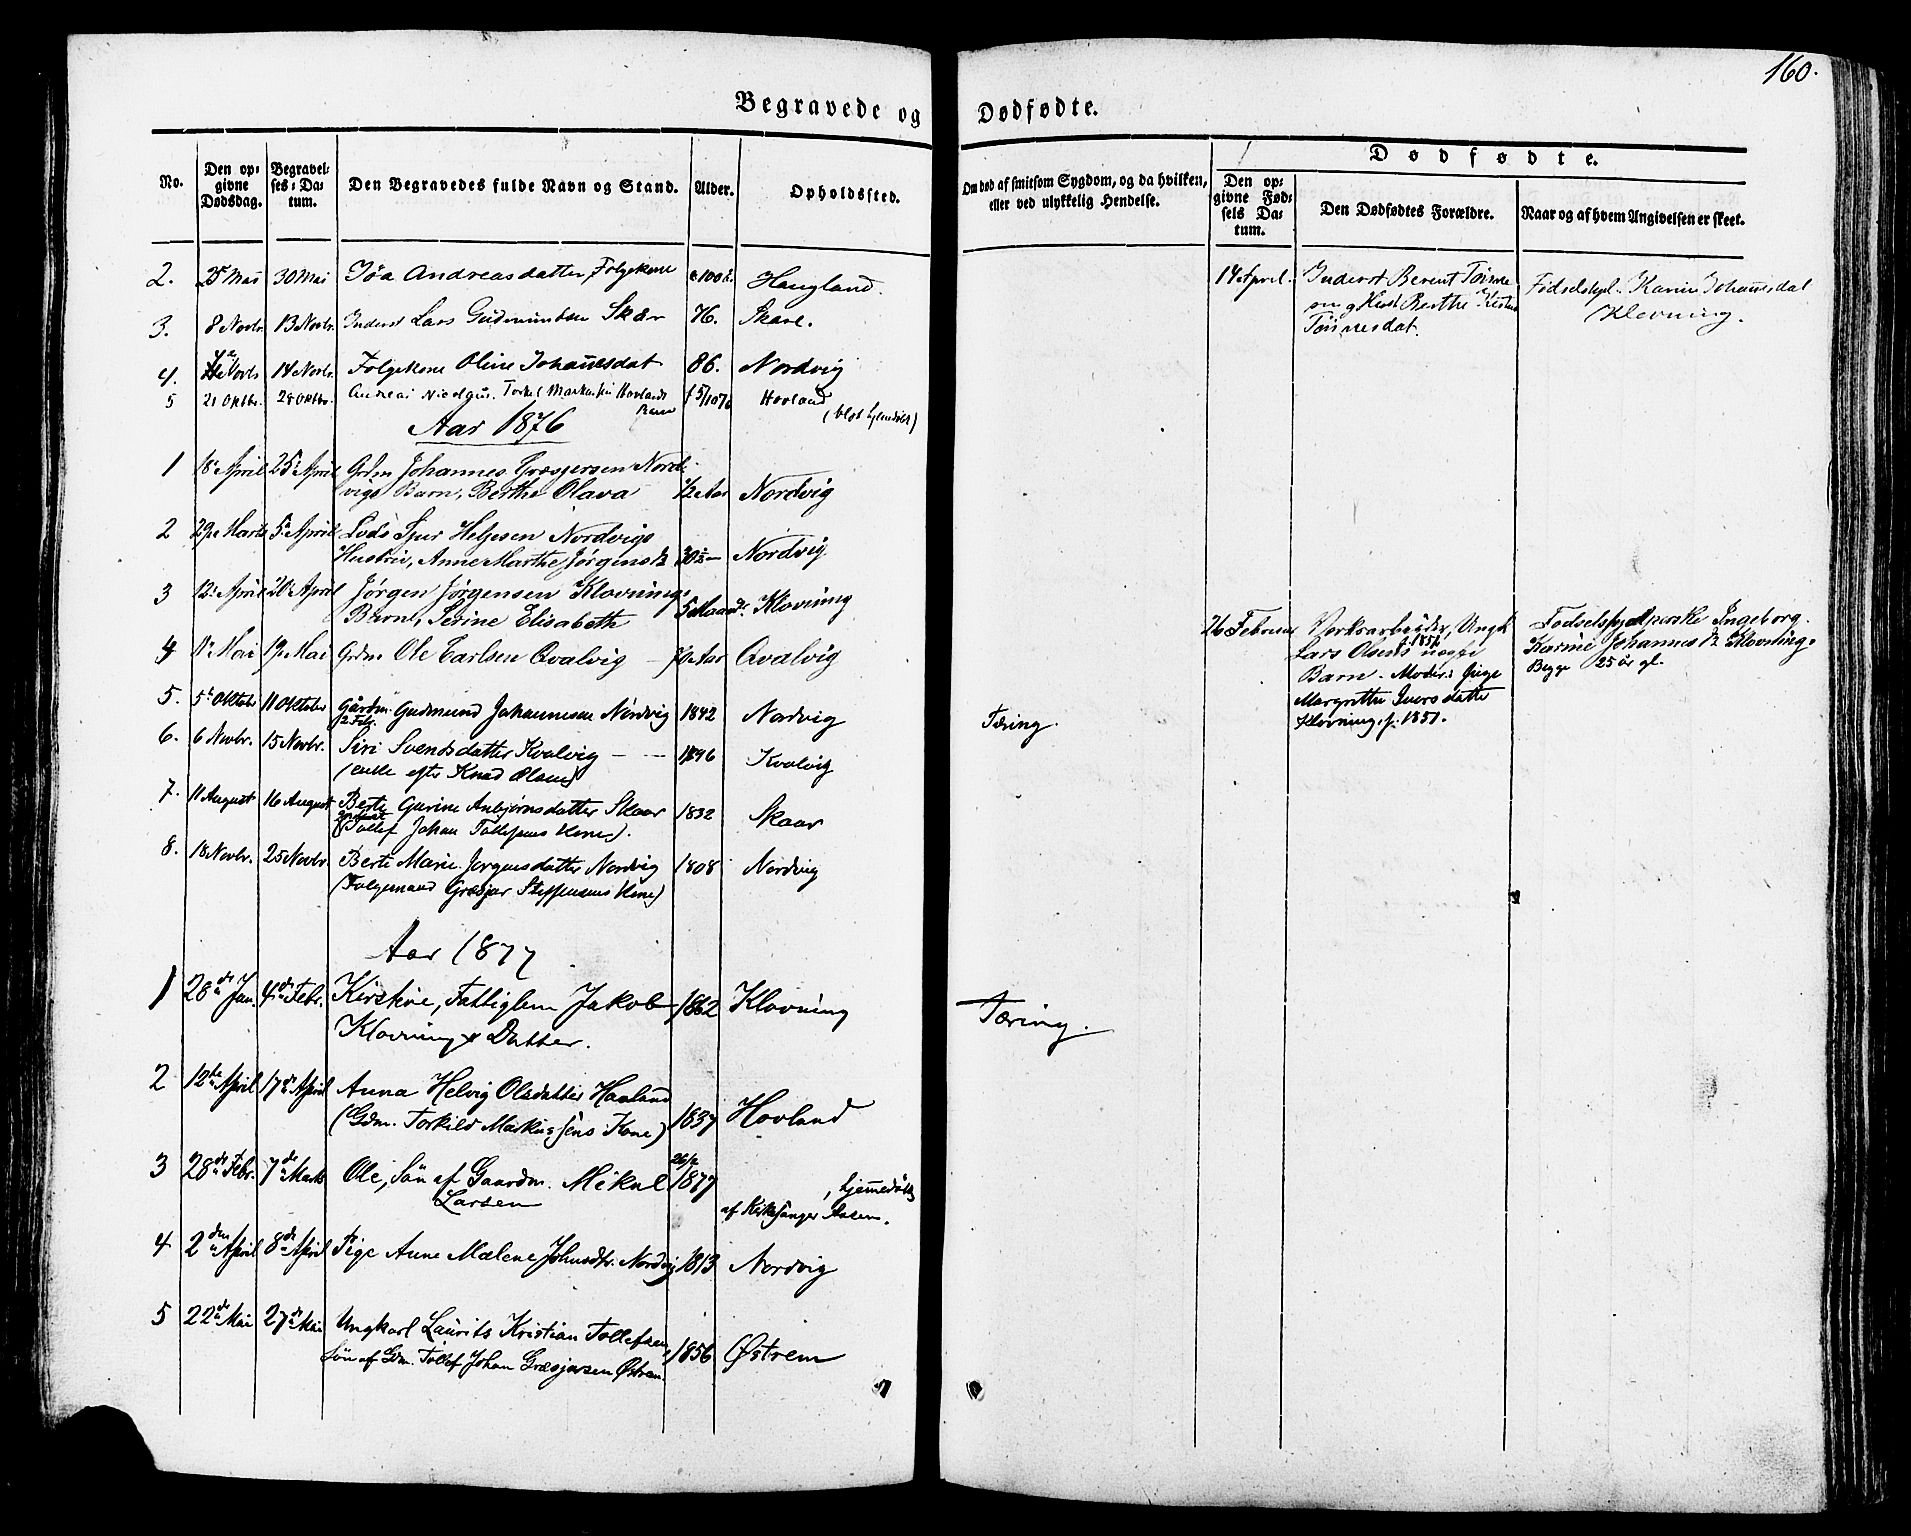 160.
Begravede og Dødfødte.
No.
Den opgivne Dødsdag.
Begravelses-Datum.
Den Begravedes fulde Navn og Stand.
Alder.
Opholdssted.
Om død af smitsom Sygdom, og da hvilken, eller ved ulykkelig Hendelse.
Dødfødte.
Den opgivne Fødsels Datum.
Den Dødfødtes Forældre.
Naar og af hvem Angivelsen er skeet.
2. 25 Mai 30 Mai Andreasdatter, Folgekone 100 Haugland.
14 April. Inderst Berent Fødselshjel. Karine Johannesdat
og Hust. Berthe Klovning.
Tønnesdat.
3. 8 Novbr 13 Novbr. Inderst Lars Gudmundsen Skær 76. Skare.
4. Novbr 14 Novbr. Folgekone Oline Johannesdat 86. Nordvig
5 21 Oktbr. 28 Oktbr. Andreas Torkel Markussen Hovlands Hovland
Barn
Aar 1876
1 18 April 25 April Grdm Johannes Græsjersen Nord-
vigs Barn, Berthe Olava 1/2 Aar Nordvig
2 29 Marts 5 April Lods Sjur Heljesen Nordvigs
Hustru, Anne Marthe Jørgensd. 30 1/2 — Nordvig
3 12 April 20 April Jørgen Jørgensen Klovnings
Barn, Serine Elisabeth 5 Maand. Klovning
26 Februar Verksarbeider, Ungk. Fødselshjelperske Ingeborg
Lars Olsens 1851 uægte Karine Johannesd. Klovning.
Barn. Moder: Pige Begge 25 år gl.
Margrethe Iversdatter
Klovning, f. 1851.
4 11 Mai 19 Mai Grdm Ole Carlsen Qvalvig — 70 Aar Qvalvig
5. 5 Oktober 11 Oktober Gårdm. Gudmund Johannesen Nordvig 1842 Nordvig Tæring.
6. 6 Novbr. 15 Novbr. Siri Svendsdatter Kvalvig — 1796 Kvalvig
(enke efter Knud Olsen)
7. 11 August 16 August Berte Gurine Anbjørnsdatter Skaar 1832 Skaar
(Tollef Johan Tollefsens Kone).
8. 18 Novbr. 25 Novbr. Berte Marie Jørgensdatter Nordvig 1808 Nordvig
(Folgemand Græsjer Steffensens Kone)
Aar 1877
1 28de Jan. 4de Febr. Kirstine, Fattiglem Jakob 1862 Klovning Tæring.
Klovnings Datter.
2 12te April 17de April Anna Helvig Olsdatter Hovland
(Gdm. Torkild Markussens Kone) 1837 Hovland
3 28de Febr. 7de Marts Ole, Søn af Gaardm. Mikal 26/2 1877 , hjemmedøbt
Larsen af Kirkesanger Aasen.
4 2den April 8de April Pige Anne Malene Johnsdtr. Nordvig 1813 Nordvig
5 22de Mai 27de Mai Ungkarl Laurits Kristian Tollefsen,
Søn af Gdm. Tollef Johan Græsjersen Østrem. 1856 Østrem